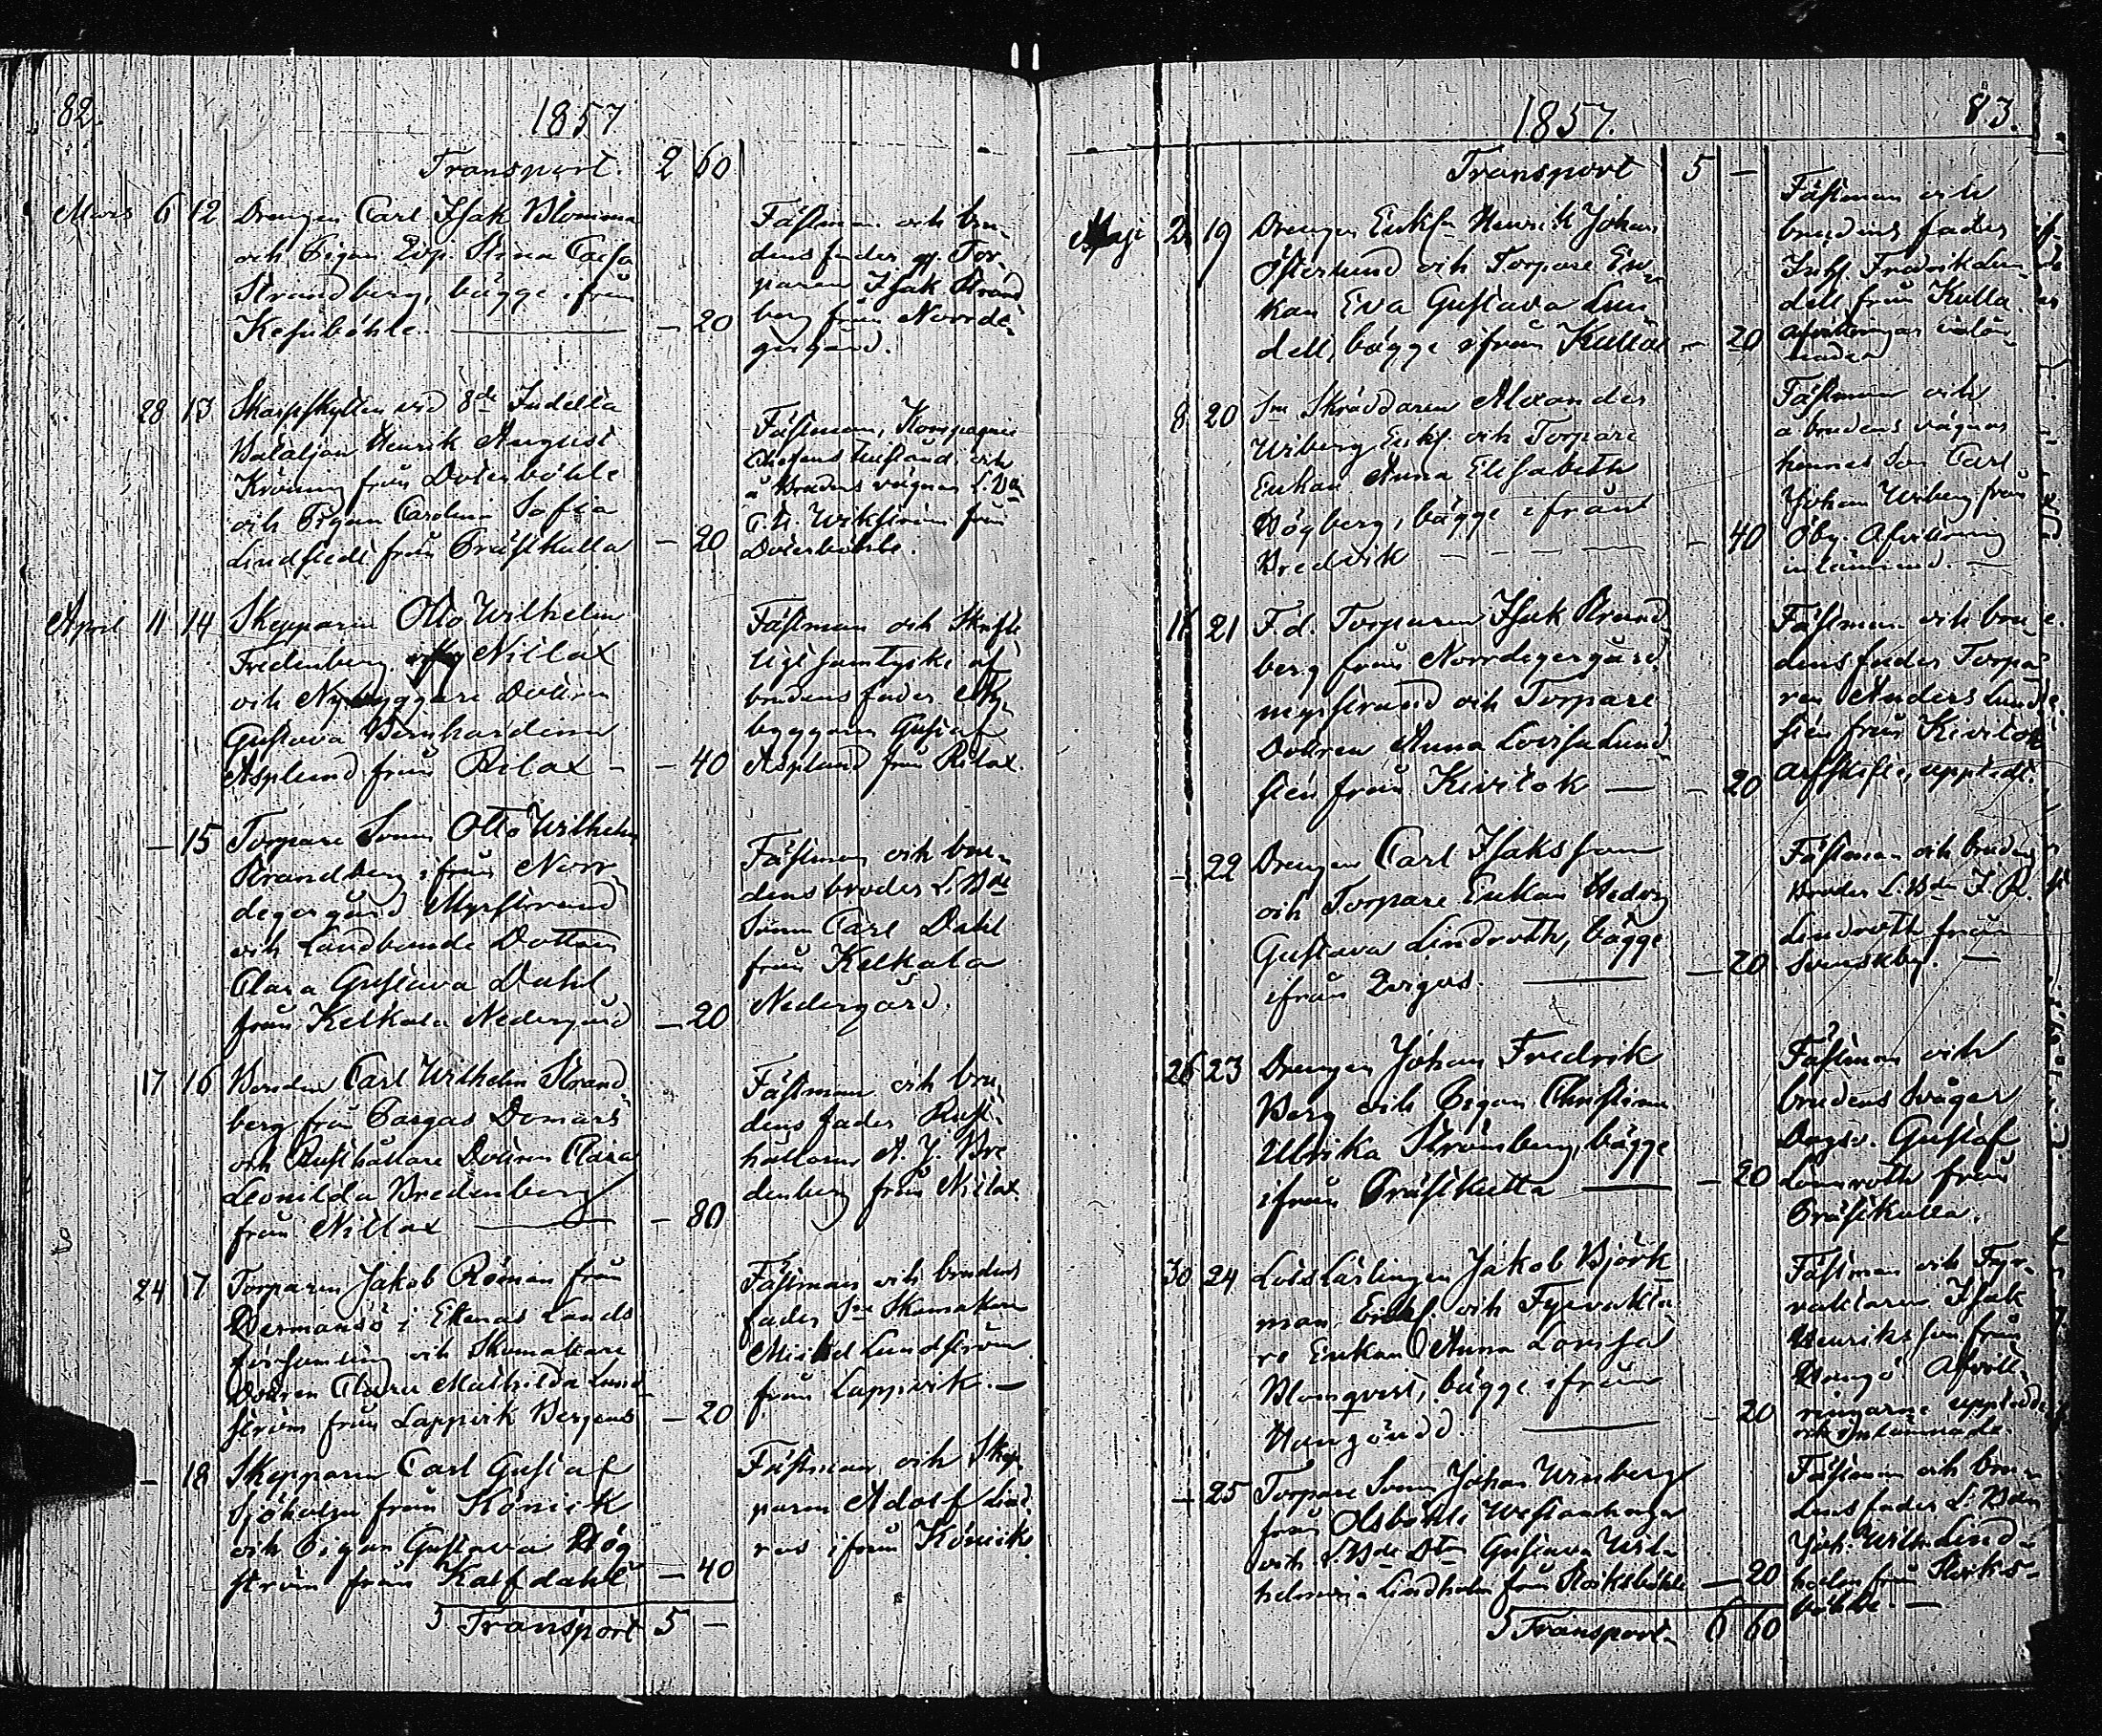 82.
1857
Transport. 2 60
Mars 6 12 Drengen Carl Isak Blomma
och Pigan Evp. Stina Caisa
Strandberg, bägge ifrån
Kesuböhle. — 20
Fästman och bru-
dens fader gp. Tor-
paren Isak Strand
berg från Norrde-
gergård.
28 13 Skarpskytten vid 8de Indelta
Bataljon Henrik August
Kröning från Dötersböhle
och Pigan Carolina Sofia
Lindstedt från Prästkulla — 20
Fästman, Kompagnie
Chefens tillstånd och
å Brudens vägnar L. Bdn
C. H. Wikström från
Dötersböhle.
April 11 14 Skepparen Otto Wilhelm
Fredenberg Nitlax
och Nybyggare Dottren
Gustava Bernhardina
Asplund från Rilax — 40
Fästman och Skrift-
ligt samtycke af
brudens fader Ny-
byggaren Gustaf
Asplund från Rilax.
— 15 Torpare Sonen Otto Wilhelm
Strandberg ifrån Norr-
degergård Myrstrand
och Landbonde Dottren
Clara Gustava Dahl
från Kelkala Nedergård — 20
Fästman och bru-
dens broder L. Bde
Sonen Carl Dahl
från Kelkala
Nedergård.
17 16 Bonden Carl Wilhelm Strand
berg från Pargas Domars
och Rusthållare Dottren Clara
Leonilda Bredenberg
från Nitlax — 80
Fästman och bru-
dens fader Rust-
hållaren A. J. Bre
denberg från Nitlax
24 17 Torparen Jakob Röman från
Dermansö i Ekenäs Lands
församling och Skomakare
Dottren Clara Mathilda Lund-
ström från Lappvik Bergens — 20
Fästman och brudens
fader Sn Skomakare
Michel Lundström
från Lappvik. —
— 18 Skepparen Carl Gustaf
Sjöholm från Könick
och Pigan Gustava Hög
ström från Kalfdahl — 40
Fästman och Skep-
paren Adolf Lind
ros ifrån Könick.
Transport 5 —
83.
1857.
Transport 5 —
Maji 2 19 Drengen Enkl. Henrik Johan
Österlund och Torpare En-
kan Eva Gustava Lun-
dell, bägge ifrån Kulla — 20
Fästman och
brudens fader
Inhs. Fredrik Lun-
dell från Kulla
afvittringar inläm-
nader
8 20 Sn Skräddaren Alexander
Wiberg Enkl. och Torpare
Enkan Anna Elisabeth
Högberg, bägge ifrån
Bredvik — 40
Fästman och
å brudens vägnar
hennes Son Carl
Johan Wiberg från
Öby. Afvittring
inlämnad. —
11 21 F.d. Torparen Isak Strand
berg från Norrdegergård
myrstrand och Torpare
Dottren Anna Lovisa Lund-
stén från Kivitok — 20
Fästman och bru-
dens fader Torpa-
ren Anders Lund-
stén från Kivitok
arfskifte, uppledt.
— 22 Drengen Carl Isaksson
och Torpare Enkan Hedvig
Gustava Lindroth, bägge
ifrån — 20
Fästman och brudens
Broder L. Bdn J. R.
Lindroth från
Svenskby. —
26 23 Drengen Johan Fredrik
Berg och Pigan Christina
Ulrika Strömberg, bägge
ifrån Prästkulla — 20
Fästman och
brudens Svåger
Dagsv. Gustaf
Lönnroth från
Prästkulla.
30 24 Lotslärlingen Jakob Björk-
man, Enkl. och Fyrvakta-
re Enkan Anna Lovisa
Blomqvist, bägge ifrån
Hangöudd. — 20
Fästman och Fyr-
vaktaren Isak
Henriksson från
Hangö Afvitt-
ringarne uppledde
och inlämnade.
— 25 Torpare Sonen Johan Winberg
från Olsböhle Westanhaga
och L. Bde Dtn Gustava Wil-
helmina Lindholm från Storksböhle — 20
Fästman och bru-
dens fader L. Bdn
Joh. Wilh. Lind-
holm från Storks-
böhle. —
Transport 6 60